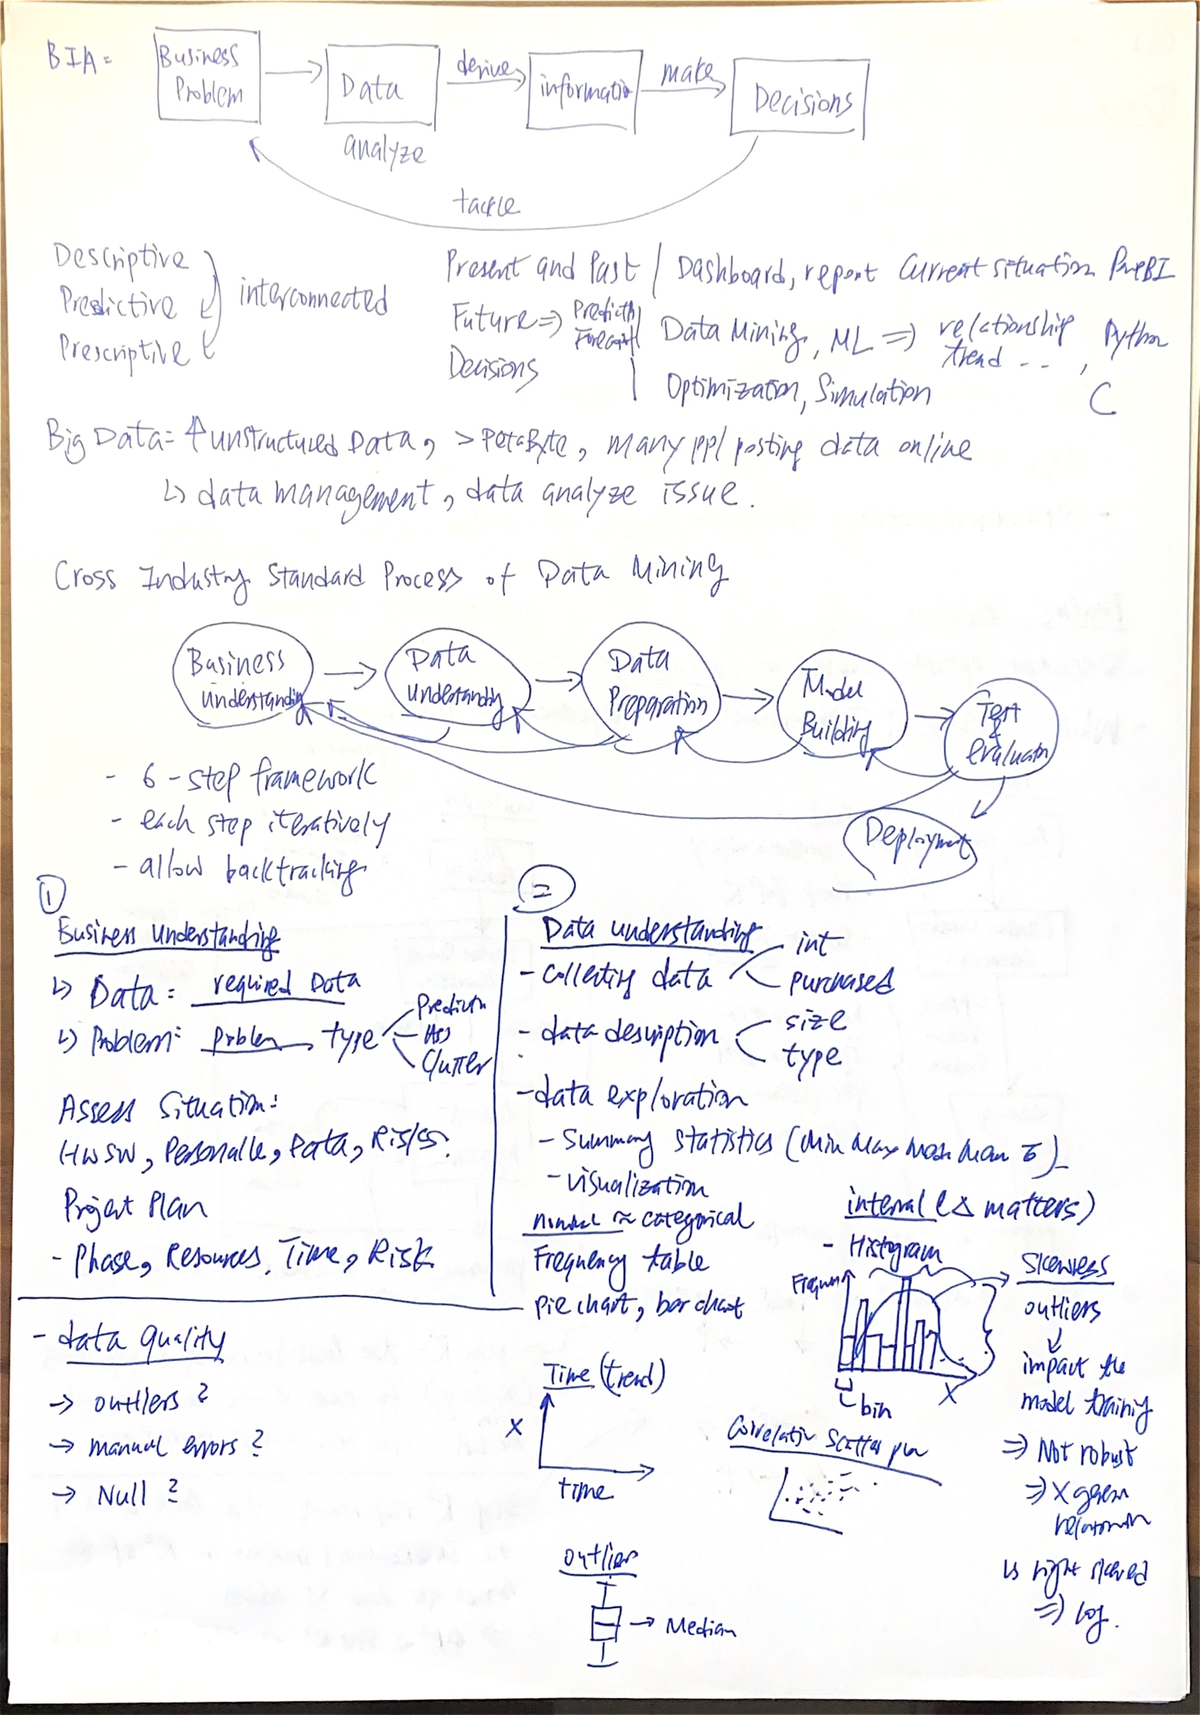 BIA =
Business Problem
Data
analyze
derive
information
make
Decisions
tackle
Descriptive
Predictive
Prescriptive
interconnected
Present and Past / Dashboard, report Current situation
Future ⇒ Data Mining, ML ⇒ relationship trend .. , Python
Decisions Optimization, Simulation C
Big Data = ↑ unstructured Data, > PetaByte, many ppl posting data online
↳ data management, data analyze issue.
Cross Industry Standard Process of Data Mining
Business understanding
Data understanding
Data Preparation
Model Building
Test & evaluation
Deployment
- 6-step framework
- each step iteratively
- allow backtracking
①
Business Understanding
↳ Data = required Data
↳ Problem: problem type
Prediction
Ass
Cluster
Assess Situation:
HW SW, Personalle, Data, Risks.
Project Plan
- Phase, Resources, Time, Risk
②
Data understanding
- collecting data
int
purchased
- data description
size
type
- data exploration
- Summary statistics (Min Max
- visualization
nominal ≈ categorical
Frequency table
pie chart, bar chart
interval (Δ matters)
- Histogram
X
bin
Skewness
outliers
impact the
model training
⇒ Not robust
⇒ X
↳ right skewed
⇒ log.
Time (trend)
X
time
Correlation Scatter
outlier
→ Median
- data quality
→ outliers?
→ manual errors?
→ Null?